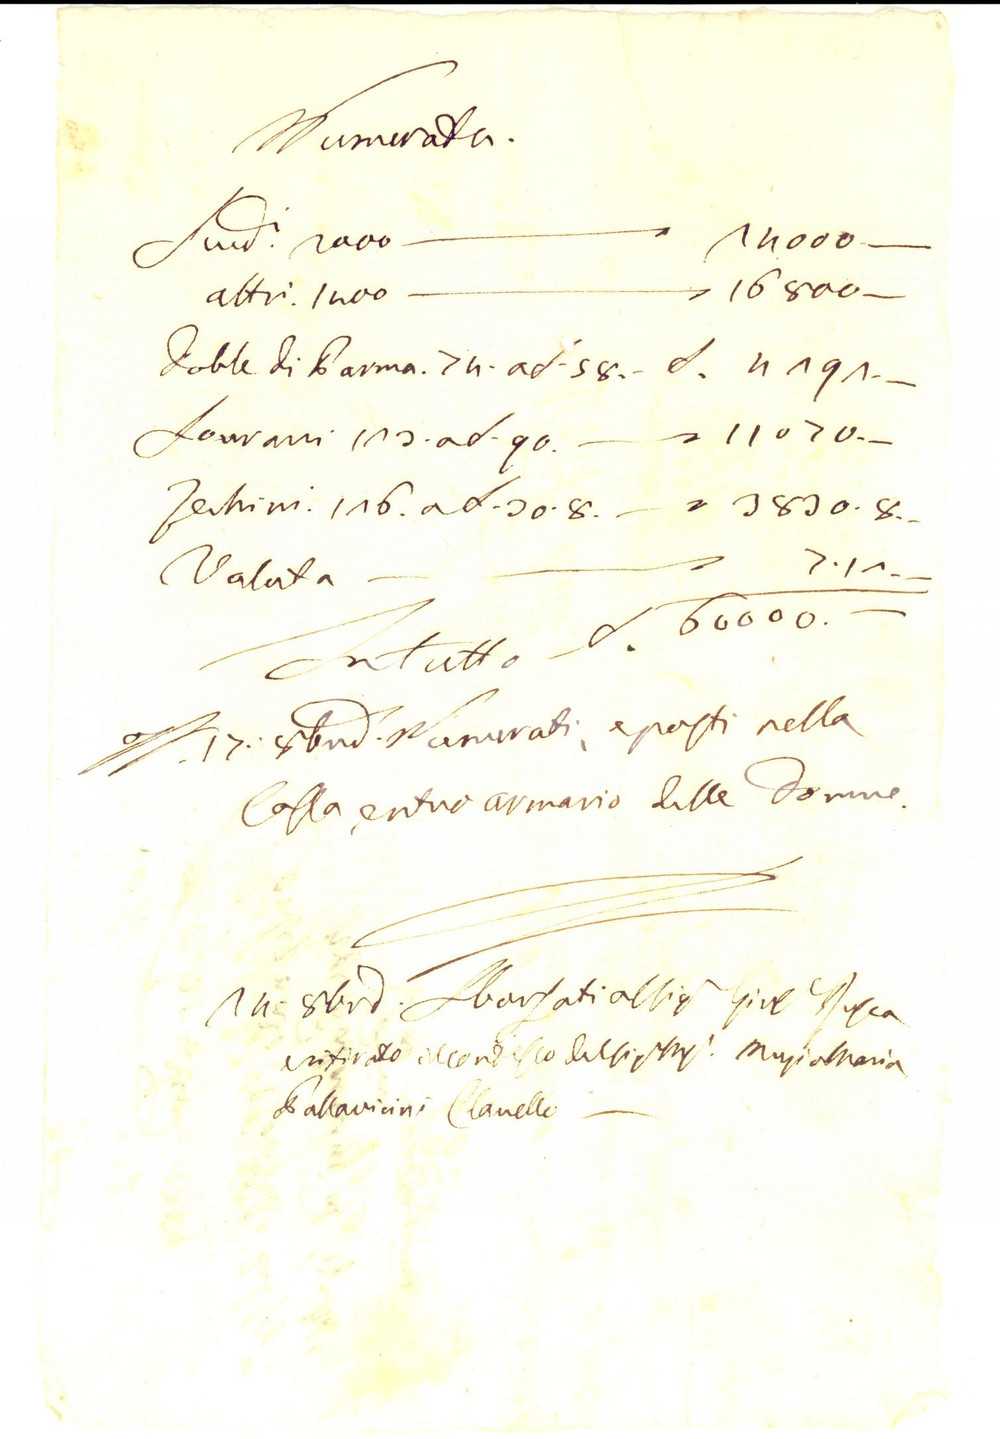 Numerata.
Scudi. 2000 — 24000 —
altri. 1400 — 16800 —
Doble di Parma. 74. a £. 58. — £. 4292. —
Sourani 123. a £. 90. — 11070. —
Zechini. 126. a £. 30. 8. — 3830. 8. —
Valuta — 7. 12. —
In tutto £. 60000. —
17. 8bre. Numerati, e posti nella
Cassa entro armario delle Donne.
24. 8bre. Sborsati al Sigr
e ritirato il del Sigr Maria
Pallavicini Clavello —